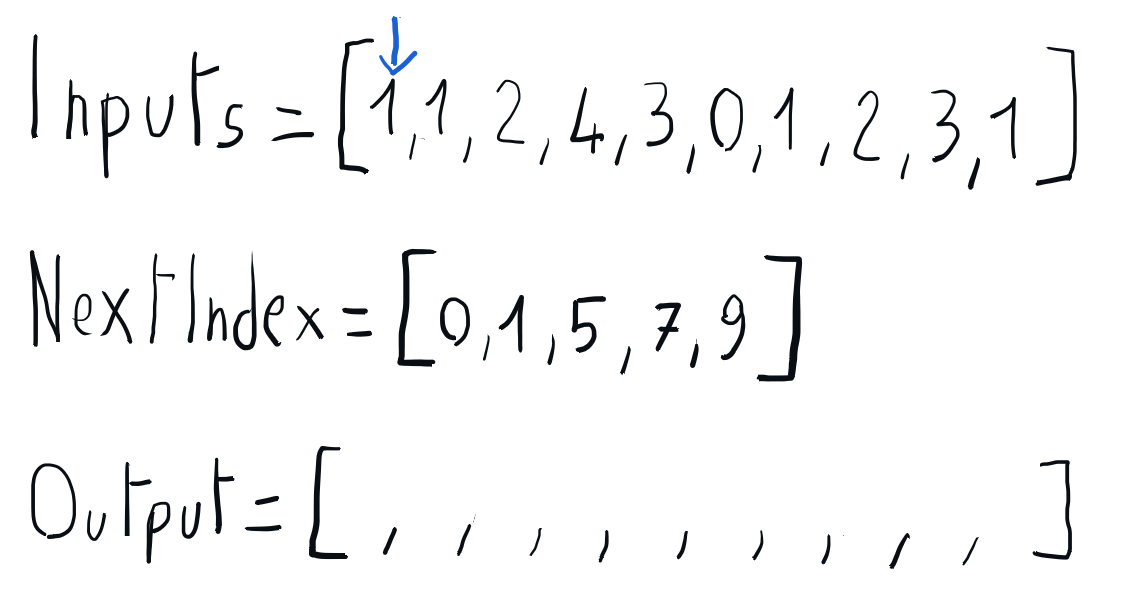 Inputs = [1,1,2,4,3,0,1,2,3,1]
NextIndex = [0,1,5,7,9]
Output = [ , , , , , , , , , ]